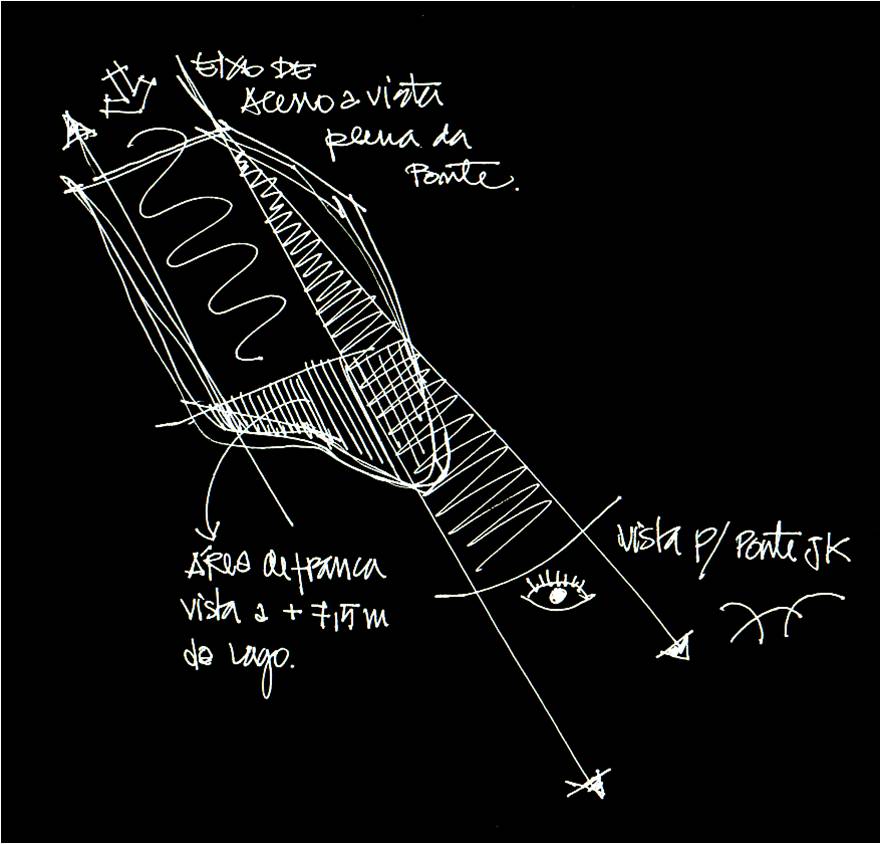 EIXO DE
Acesso a vista
plena da
Ponte.
vista p/ Ponte JK
ÁREA de franca
vista a + 7,5 m
do Lago.